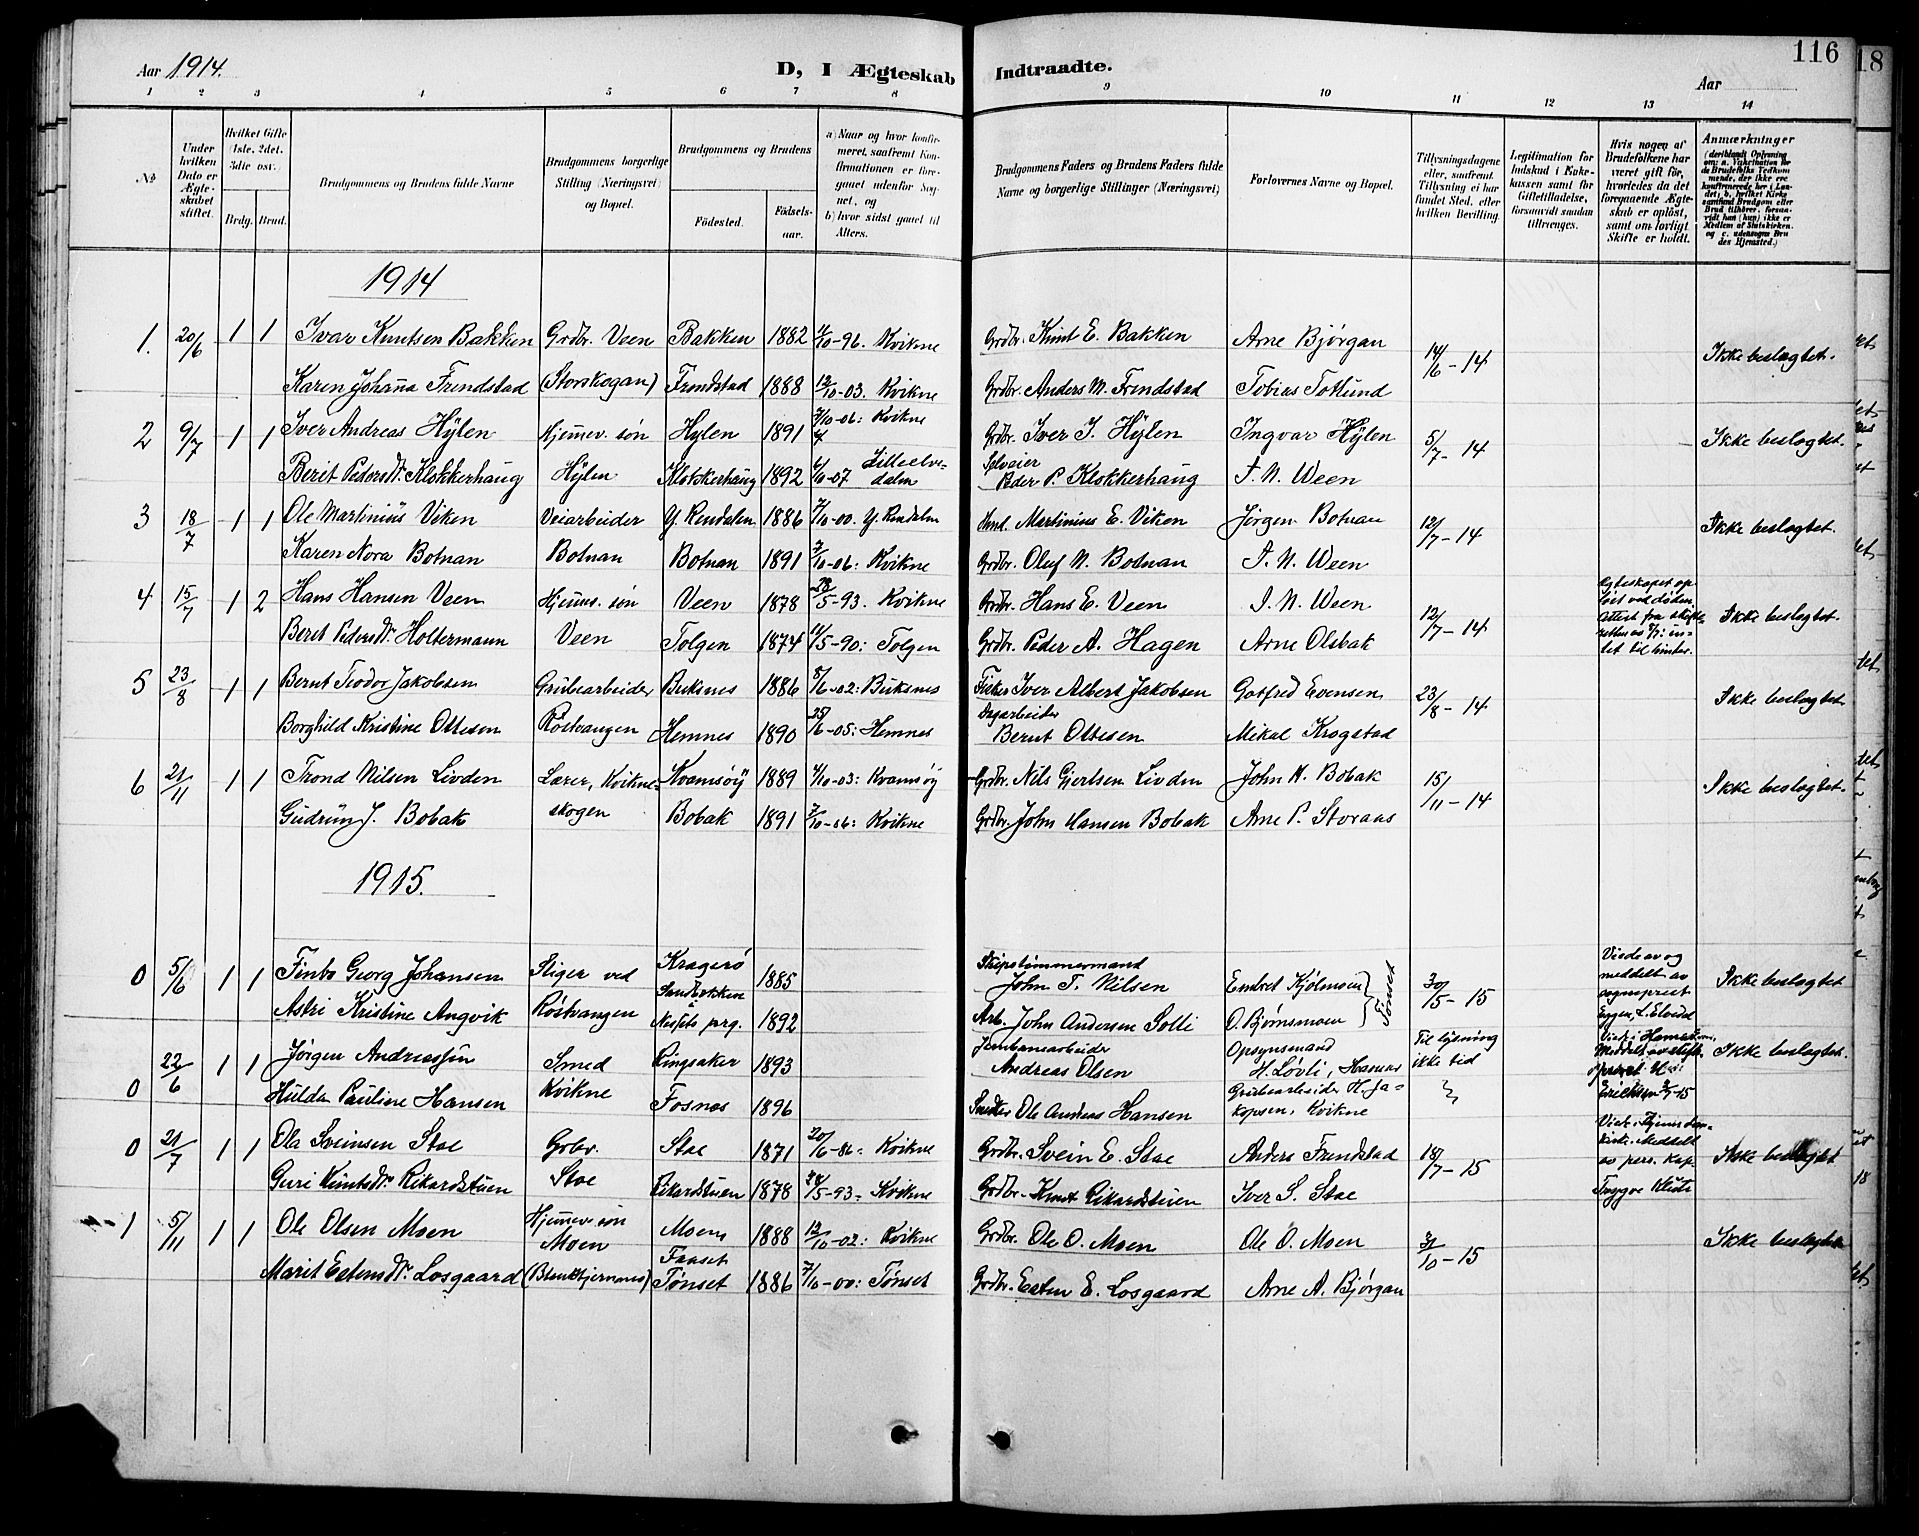 Aar 1914.
D, I Ægteskab Indtraadte.
116
Aar
1 2 3 4 5 6 7 8 9 10 11 12 13 14
No
Under hvilken Dato er Ægteskabet stiftet.
Hvilket Gifte (1ste, 2det, 3die osv.)
Brdg. Brud.
Brudgommens og Brudens fulde Navne
Brudgommens borgerlige Stilling (Næringsvei) og Bopæl.
Brudgommens og Brudens
Fødested.
Fødselsaar.
a) Naar og hvor konfirmeret, saafremt Konfirmationen er foregaaet udenfor Sognet, og
b) hvor sidst gaaet til Alters.
Brudgommens Faders og Brudens Faders fulde Navne og borgerlige Stillinger (Næringsvei)
Forlovernes Navne og Bopæl.
Tillysningsdagene eller, saafremt Tillysning ei har fundet Sted, efter hvilken Bevilling.
Legitimation for Indskud i Enkekassen samt for Giftetilladelse, forsaavidt saadan tiltrænges.
Hvis nogen af Brudefolkene har været gift før, hvorledes da det foregaaende Ægteskab er opløst, samt om lovligt Skifte er holdt.
Anmærkninger
1914
1. 20/6 1 1 Ivar Knutsen Bakken Grdbr. Veen Bakken 1882 4/10-96. Kvikne Grdbr. Knut E. Bakken Arne Bjørgan 14/6-14 Ikke beslægtet.
Karen Johanna Frendstad (Storskogan) Frendstad 1888 12/10-03. Kvikne Grdbr. Anders M. Frendstad Tobias Totlund
2 9/7 1 1 Iver Andreas Hylen Hjemmev. søn Hylen 1891 7/10-06: Kvikne Grdbr. Iver I. Hylen Ingvar Hylen 5/7-14 Ikke beslægtet.
Berit Pedersdtr. Klokkerhaug Hylen Klokkerhaug 1892 6/10-07 Lilleelvedalen Selveier Peder P. Klokkerhaug I. N. Ween
3 18/7 1 1 Ole Martinius Viken Veiarbeider Y. Rendalen 1886 7/10-00. Y. Rendalen Martinius E. Viken Jørgen Botnan 12/7-14 Ikke beslægtet.
Karen Nora Botnan Botnan Botnan 1891 7/10-06: Kvikne Grdbr. Oluf N. Botnan I. N. Ween
4 15/7 1 2 Hans Hansen Veen Hjemmev. søn Veen 1878 28/5-93. Kvikne Grdbr. Hans E. Veen I. N. Ween 12/7-14 Ægteskapet opløst ved døden Attest fra skifteretten Ikke beslægtet.
Berit Pedersdtr. Holtermann Veen Tolgen 1874 11/5-90: Tolgen Grdbr. Peder A. Hagen Arne Olsbak
5 23/8 1 1 Bernt Teodor Jakobsen Grubearbeider Buksnes 1886 5/6-02: Buksnes Fisker Iver Albert Jakobsen Gotfred Evensen 23/8-14 Ikke beslægtet.
Borghild Kristine Ottesen Røstvangen Hemnes 1890 25/6-05: Hemnes Dagarbeider Bernt Ottesen Mikal Krogstad
6 21/11 1 1 Trond Nilsen Livden Lærer, Kvikne- Kvamsøy 1889 4/10-03: Kvamsøy Grdbr. Nils Gjertsen Livden John H. Bobak 15/11-14 Ikke beslægtet.
Gudrun J. Bobak skogen Bobak 1891 7/10-06: Kvikne Grdbr. John Hansen Bobak Arne P. Storaas
1915.
0 5/6 1 1 Finbo Georg Johansen Stiger ved Kragerø 1885 Skipstømmermand John T. Nilsen Embret Kjølmoen Tønset 30/5-15 Viede av og meddelt av sogneprest Eggen, L. Elvedal Ikke beslægtet
Astri Kristine Angvik Røstvangen Nessets prg. 1892 Arb. John Andersen Solli O. Bjørnsmoen
0 22/6 1 1 Jørgen Andreassen Smed Ringsaker 1893 Jernbanearbeider Andreas Olsen Opsynsmand H. Løvli, Hamar Til lysning ikke tid Viede i Hamar Ikke beslægtet.
Hulda Pauline Hansen Kvikne Fosnes 1896 Ole Andreas Hansen Grubearbeider H. Jakopsen, Kvikne
0 21/7 1 1 Ola Sveinsen Stae Grbr. Stae 1871 20/6-86: Kvikne Grdbr. Svein E. Stae Anders Frendstad 18/7-15 Meddelt av pers. kap. Trygve Ikke beslægtet
Guri Knutsdtr. Rikardstuen Stae Rikardstuen 1878 28/5-93: Kvikne Grdbr. Knut Rikardstuen Iver S. Stae
1 5/11 1 1 Ole Olsen Moen Hjemmev. søn Moen Moen 1888 12/10-02: Kvikne Grdbr. Ole O. Moen Ole O. Moen 31/10-15 Ikke beslægtet
Marit Estensdtr. Losgaard (Blenktjernmo) Faaset Tønset 1886 7/10-00: Tønset Grdbr. Esten E. Losgaard Arne A. Bjørgan